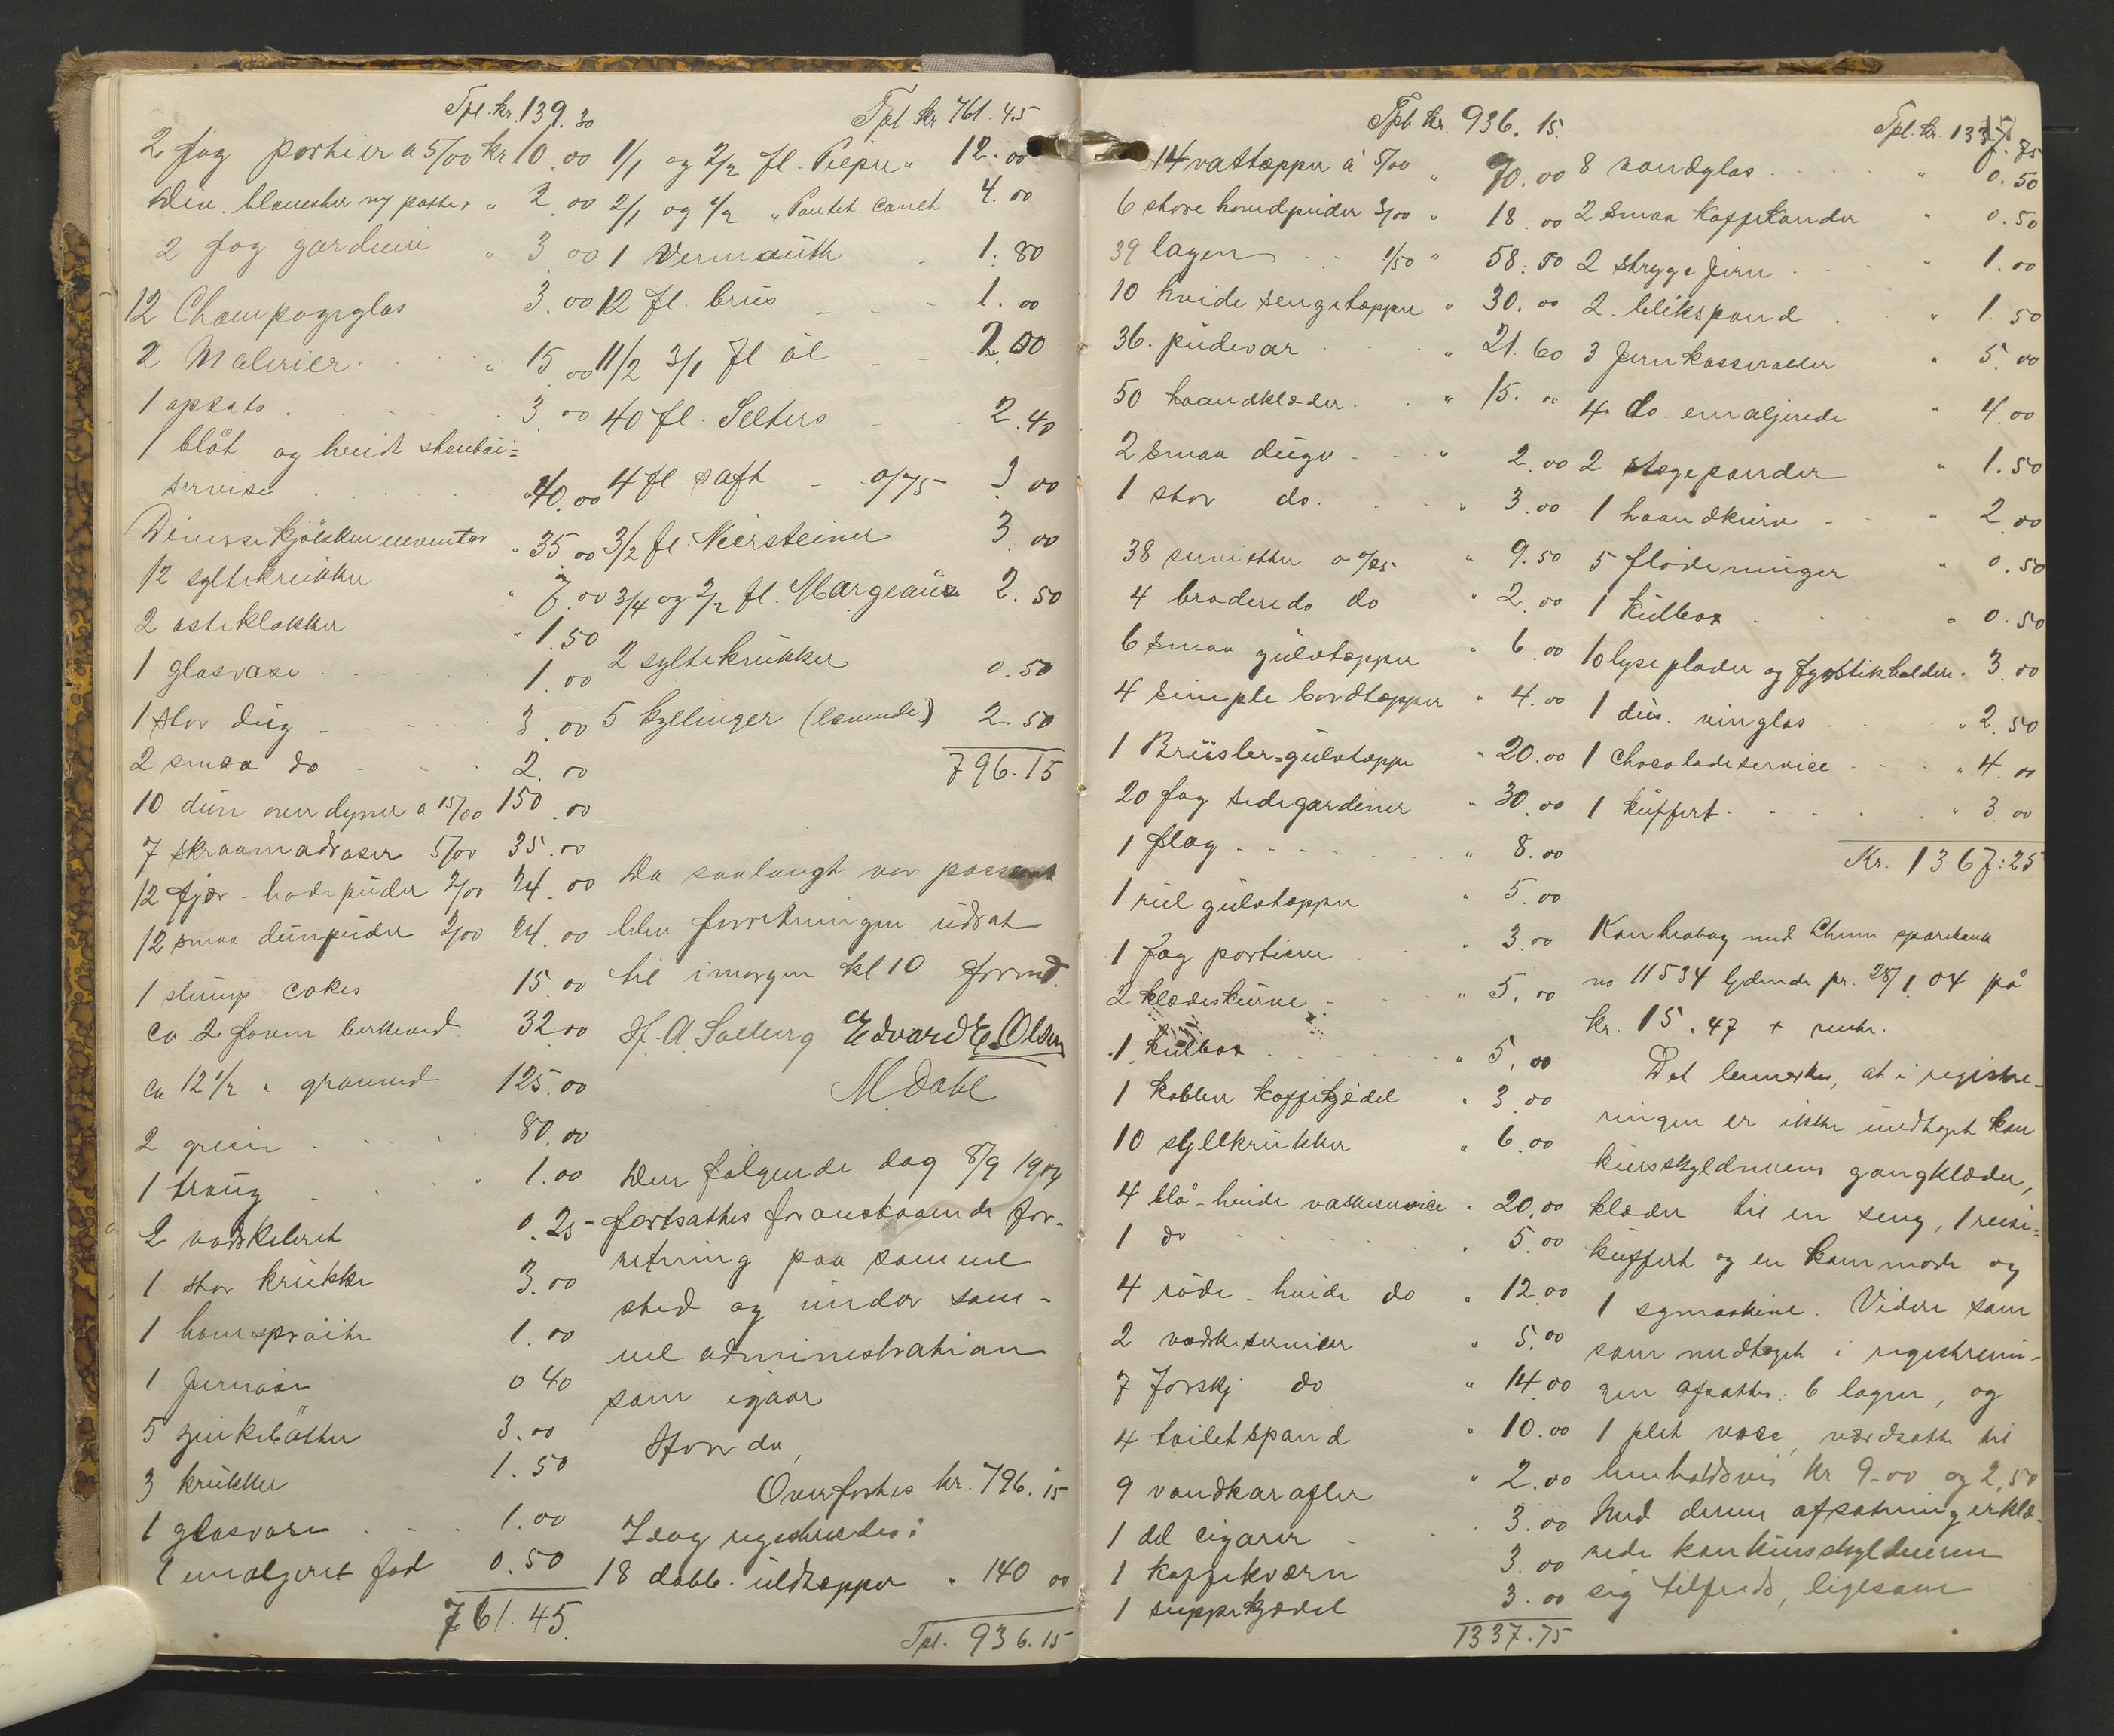 Tpl. kr. 139.30
2 fag portierer a 5/00 kr 10.00
Div. blomster og potter " 2.00
2 fag gardiner " 3.00
12 Champagneglas 3.00
2 Malerier " 15.00
1 opsats 3.00
1 blåt og hvidt stentøi=
servise " 40.00
Diverse kjökken inventar " 35.00
12 syltekrukker " 7.00
2 osteklokker " 1.50
1 glasvase 1.00
1 stor dug 3.00
2 smaa do 2.00
10 dun overdyner a 15/00 150.00
7 skraamadraser 5/00 35.00
12 fjær-hodepuder 2/00 24.00
12 smaa dunpuder 2/00 24.00
1 slump cokes 15.00
ca 2 favn birkeved 32.00
ca 12 1/2 " granved 125.00
2 griser 80.00
1 traug " 1.00
2 vadskebret 0.25
1 stor krukke 3.00
1 havesprøite 1.00
1 Jernøse 0 40
5 zinkbötter 3.00
3 krukker 1.50
1 glasvase 1.00
1 emaljeret fad 0.50
761.45
Tpl kr 761.45
1/1 og 2/2 fl. " 12.00
2/1 og 4/2 " Pontet Canet 4.00
1 Vermouth 1.80
12 fl. brus 1.00
11/2 3/1 fl öl 2.00
40 fl. Selters 2.40
4 fl saft 0/75 3.00
3/2 fl. Niersteiner 3.00
3/4 og 2/2 fl. Margeaux 2.50
2 syltekrukker 0.50
5 kyllinger (levende) 2.50
796.15
Da saalangt var passeret
blev forretningen udsat
til imorgen kl 10 formd.
H. A. Solberg Edvard E. Olsen
M. Dahl
Den følgende dag 8/9 1904
fortsattes foranstaaende for-
retning paa samme
sted og under sam-
me administration
som igaar
Hvor da,
Overførtes kr. 796.15
Idag registreredes:
18 dobb. uldtepper " 140 00
Tpl. 936.15
Tpl. kr. 936.15.
14 vattepper à 5/00 " 70.00
6 store hovedpuder 3/00 " 18.00
39 lagen 1/50 " 58.50
10 hvide sengetepper " 30.00
36. pudevar " 21.60
50 haandklæder " 15. "
2 smaa duge " 2.00
1 stor do. " 3.00
38 servietter a 0/25 " 9.50
4 broderede do " 2.00
6 smaa gulvtepper " 6.00
4 simple bordtepper " 4.00
1 Brüsler=gulvteppe " 20.00
20 fag sidegardiner " 30.00
1 flag " 8.00
1 rul gulvteppe " 5.00
1 fag portierer " 3.00
2 klædeskurve " 5.00
1 kulbox " 5.00
1 kobber kaffekjedel " 3.00
10 syltkrukker " 6.00
4 blå-hvide vaskeservice " 20.00
1 do " 5.00
4 röde-hvide do " 12.00
2 vadskeserviser " 5.00
7 forskj do " 14.00
4 toiletspand " 10.00
9 vandkarafler " 2.00
1 del cigarer 3.00
1 kaffekværn 3.00
1 suppekjedel 3.00
1337.75
Tpl. kr. 1337.75
8 vandglas " 0.50
2 smaa kaffekander " 0.50
2 strygejern " 1.00
2 blikspand " 1.50
3 Jernkasseroller " 5.00
4 do. emaljerede " 4.00
2 stegepander " 1.50
1 haandkurv " 2.00
5 flödemugger " 0.50
1 Kulbox " 0.50
10 lyseplader og fyrstikholdere " 3.00
1 dus. vinglas " 2.50
1 chocoladeservice " 4.00
1 kuffert " 3.00
Kr. 1367:25
Kontrabog med Chnm sparebank
no 11534 lydende pr. 28/1 04 på
kr. 15.47 + renter.
Det bemerkes, at i registre-
ringen er ikke medtaget kon
kursskyldnerens gangklæder,
klæder til en seng, 1 reise=
kuffert og en kommode og
1 symaskine. Videre som
som medtaget i registrerin-
gen afsattes: 6 lagen, og
1 plet vase, værdsatte til
henholdsvis kr 9.00 og 2,50
Med denne afsætning erklæ-
rede konkursskyldneren
sig tilfreds, ligesom